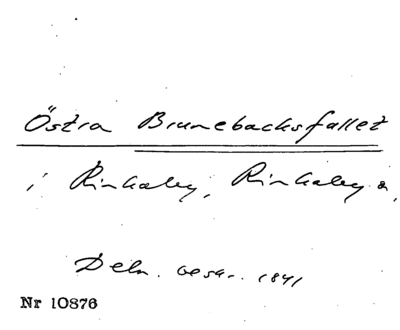 Östra Brunebacksfallet
i Rinkaby, Rinkaby s,
Deln. besk. 1841
Nr 10876